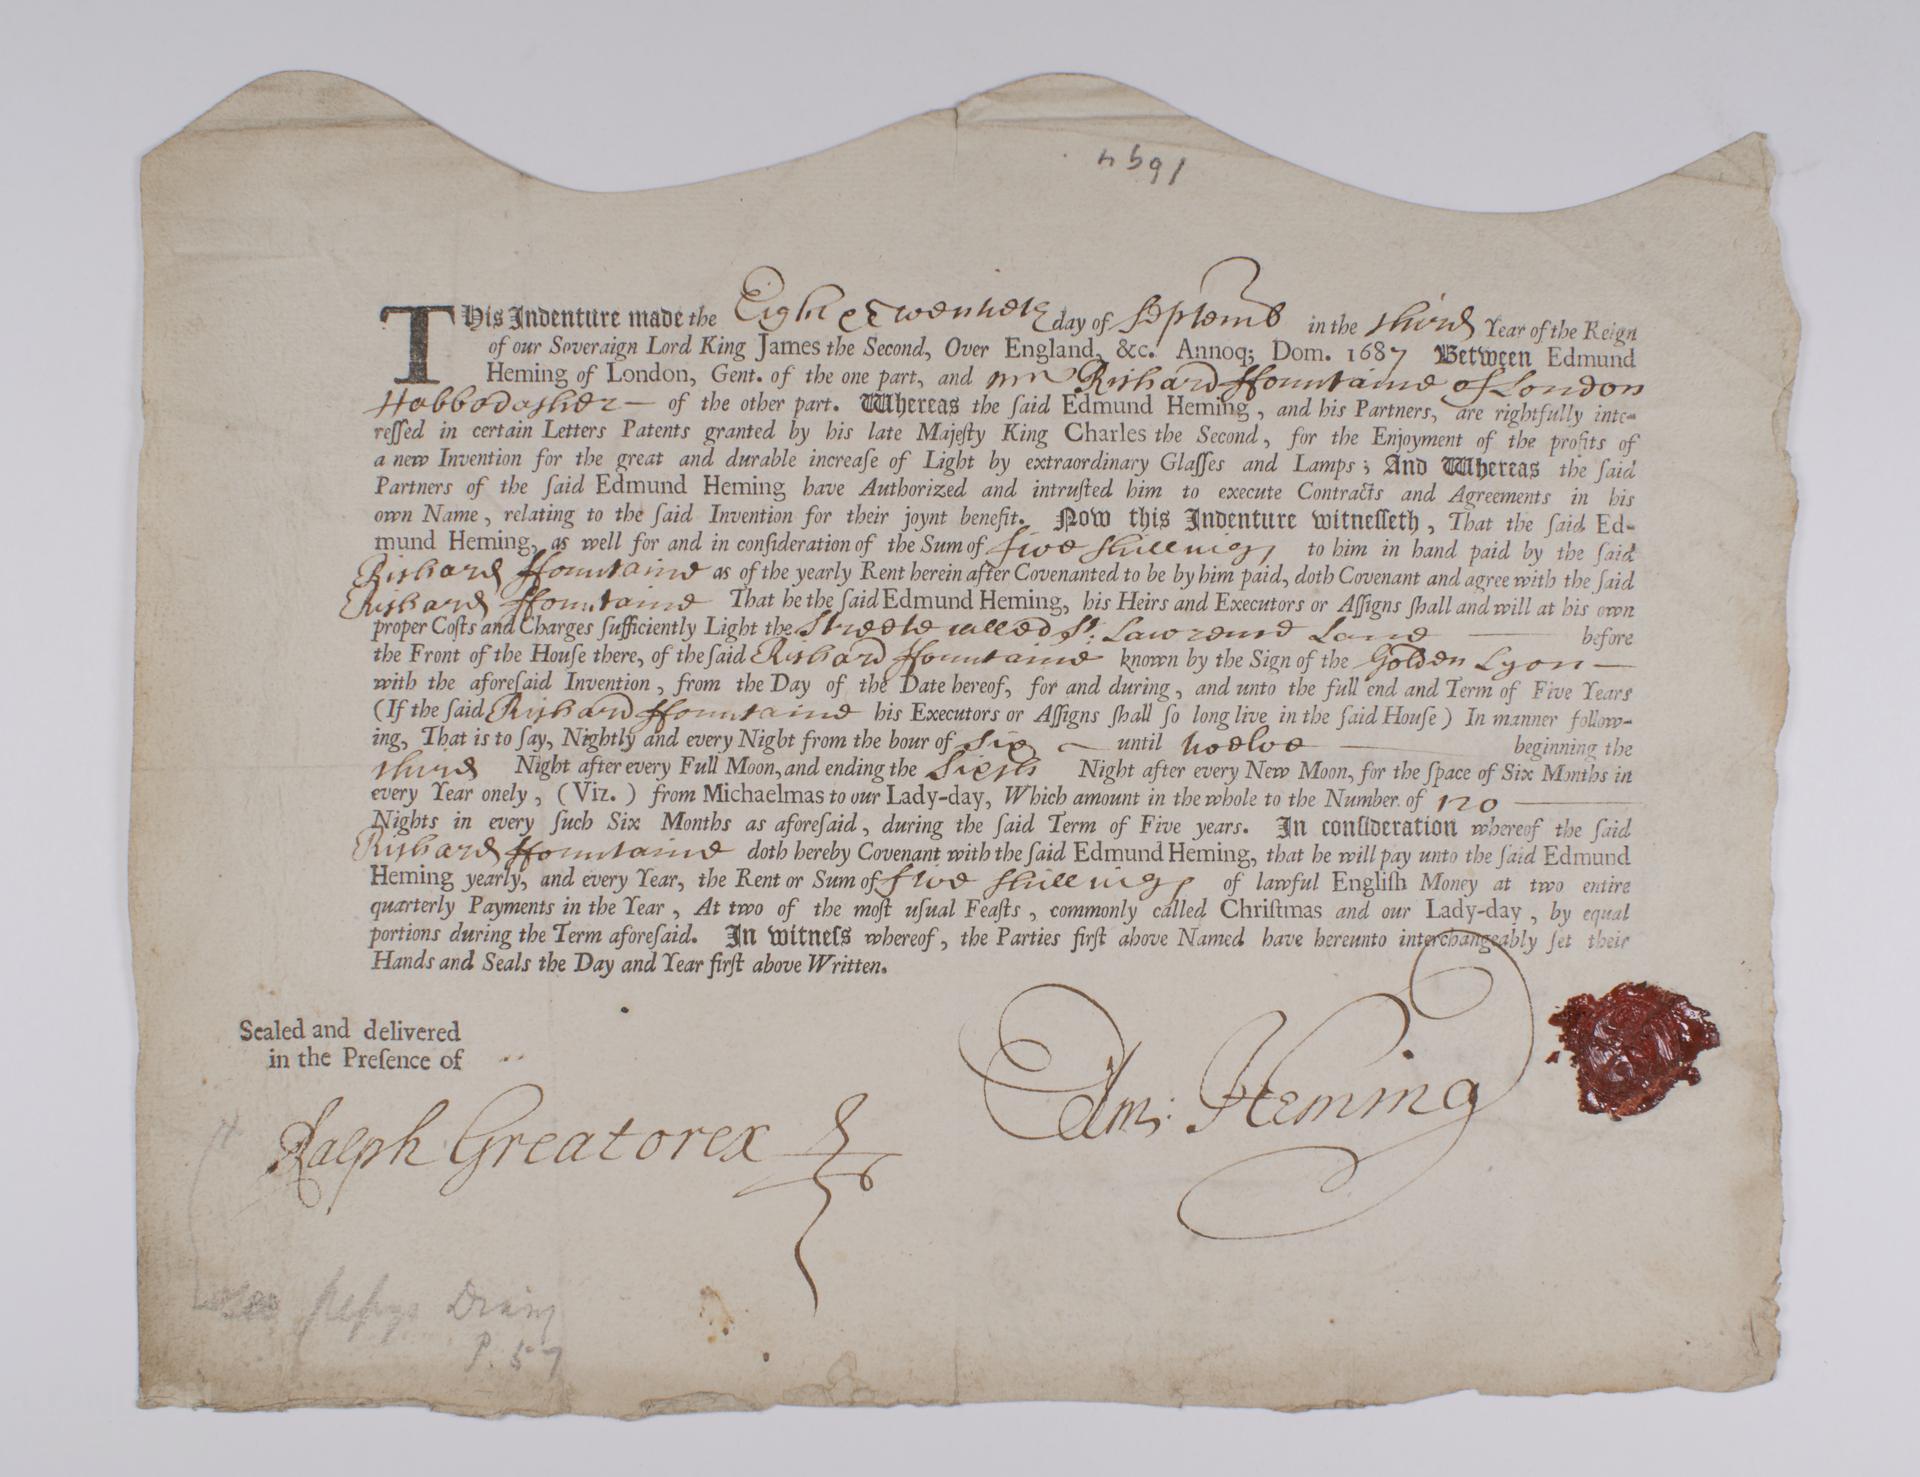 1694
This Indenture made the Eight & Twentieth day of Septemb in the third Year of the Reign
of our Soveraign Lord King James the Second, Over England, &c. Annoq; Dom. 1687 Between Edmund
Heming of London, Gent. of the one part, and mr Richard ffountaine of London
Habbodasher of the other part. Whereas the ſaid Edmund Heming, and his Partners, are rightfully inte-
reſſed in certain Letters Patents granted by his late Majeſty King Charles the Second, for the Enjoyment of the profits of
a new Invention for the great and durable increaſe of Light by extraordinary Glaſſes and Lamps; And Whereas the ſaid
Partners of the ſaid Edmund Heming have Authorized and intruſted him to execute Contracts and Agreements in his
own Name, relating to the ſaid Invention for their joynt benefit. Now this Indenture witneſſeth, That the ſaid Ed-
mund Heming, as well for and in conſideration of the Sum of five shillings to him in hand paid by the ſaid
Richard ffountaine as of the yearly Rent herein after Covenanted to be by him paid, doth Covenant and agree with the ſaid
Richard ffountaine That he the ſaid Edmund Heming, his Heirs and Executors or Aſſigns ſhall and will at his own
proper Coſts and Charges ſufficiently Light the Streete called St. Lawrence Lane before
the Front of the Houſe there, of the ſaid Richard ffountaine known by the Sign of the Golden Lyon
with the aforeſaid Invention, from the Day of the Date hereof, for and during, and unto the full end and Term of Five Years
(If the ſaid Richard ffountaine his Executors or Aſſigns ſhall ſo long live in the ſaid Houſe) In manner follow-
ing, That is to ſay, Nightly and every Night from the hour of Six until twelve beginning the
third Night after every Full Moon, and ending the Sixth Night after every New Moon, for the ſpace of Six Months in
every Year onely, (Viz.) from Michaelmas to our Lady-day, Which amount in the whole to the Number of 120
Nights in every ſuch Six Months as aforeſaid, during the ſaid Term of Five years. In conſideration whereof the ſaid
Richard ffountaine doth hereby Covenant with the ſaid Edmund Heming, that he will pay unto the ſaid Edmund
Heming yearly, and every Year, the Rent or Sum of five shillings of lawful Engliſh Money at two entire
quarterly Payments in the Year, At two of the moſt uſual Feaſts, commonly called Chriſtmas and our Lady-day, by equal
portions during the Term aforeſaid. In witneſs whereof, the Parties firſt above Named have hereunto interchangeably ſet their
Hands and Seals the Day and Year firſt above Written.
Sealed and delivered
in the Preſence of
Edm: Heming
Ralph Greatorex
See Pepys Diary
P. 57